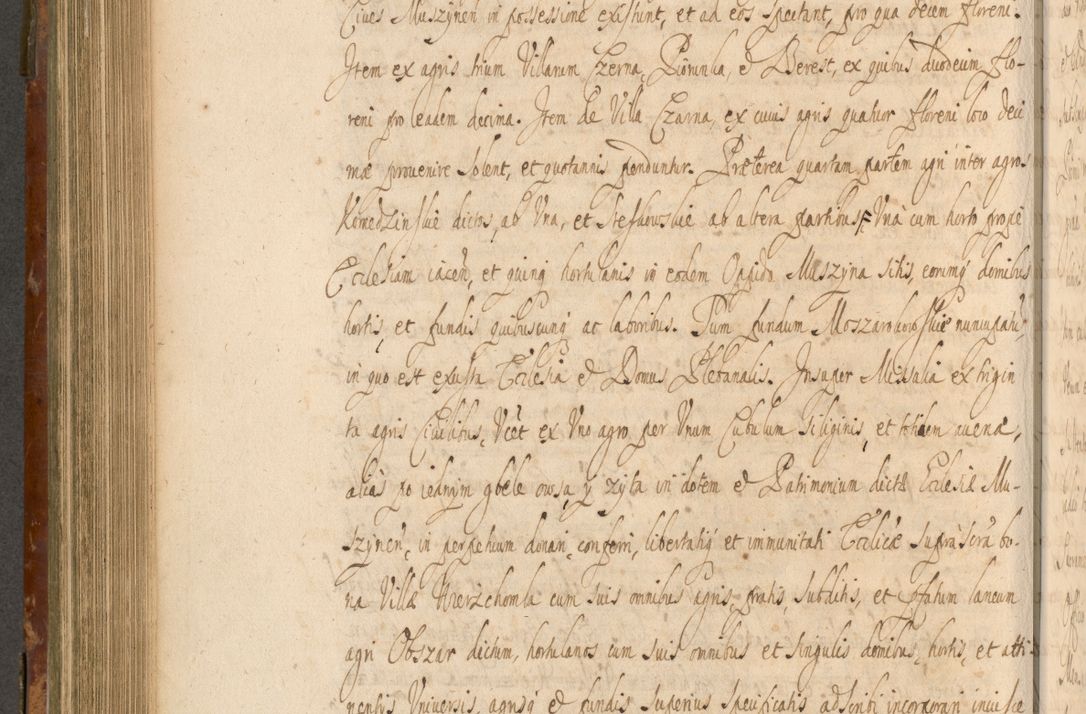 Cives Muszÿnen̄ in possessione existunt, et ad eos spectant, pro qua decem floreni.
Item ex agris trium Villarum Czerna, Piorunka, & Berest, ex quibus duodecim flo-
reni pro eadem decima. Item de Villa Czarna, ex cuius agris quatuor floreni loco deci
mæ prouenire solent, et quotannis penduntur. Præterea quartam partem agri inter agros
dictos, ab Vna, et ab altera partibus, Vnà cum horto propè
Ecclesiam iacen̄, et quinq hortulanis in eodem Oppido Muszyna sitis, eorumq domibus
hortis, et fundis quibuscunq ac laboribus. Tum fundum nuncupatū,
in quo est exusta Ecclesia & Domus Plebanalis. Insuper Missalia ex trigin
ta agris Ciuilibus, Vćet ex Vno agro per Vnum Cubulum Siliginis, et totidem auenæ,
alias po iednym gbele owsa, y zyta in dotem & Patrimonium dictæ Ecclesiæ Mu-
szÿnen̄, in perpetuum donari, conferri, libertatiq et immunitati Ecclicæ supra scrā bo-
na Villæ cum suis omnibus agris, pratis, subditis, et pfatum laneum
agri Obszar dictum, hortulanos cum suis omnibus et singulis domibus, hortis, et atti-
nentiis Vniversis, agrisq & fundis superius specificatis adscribi incorporari